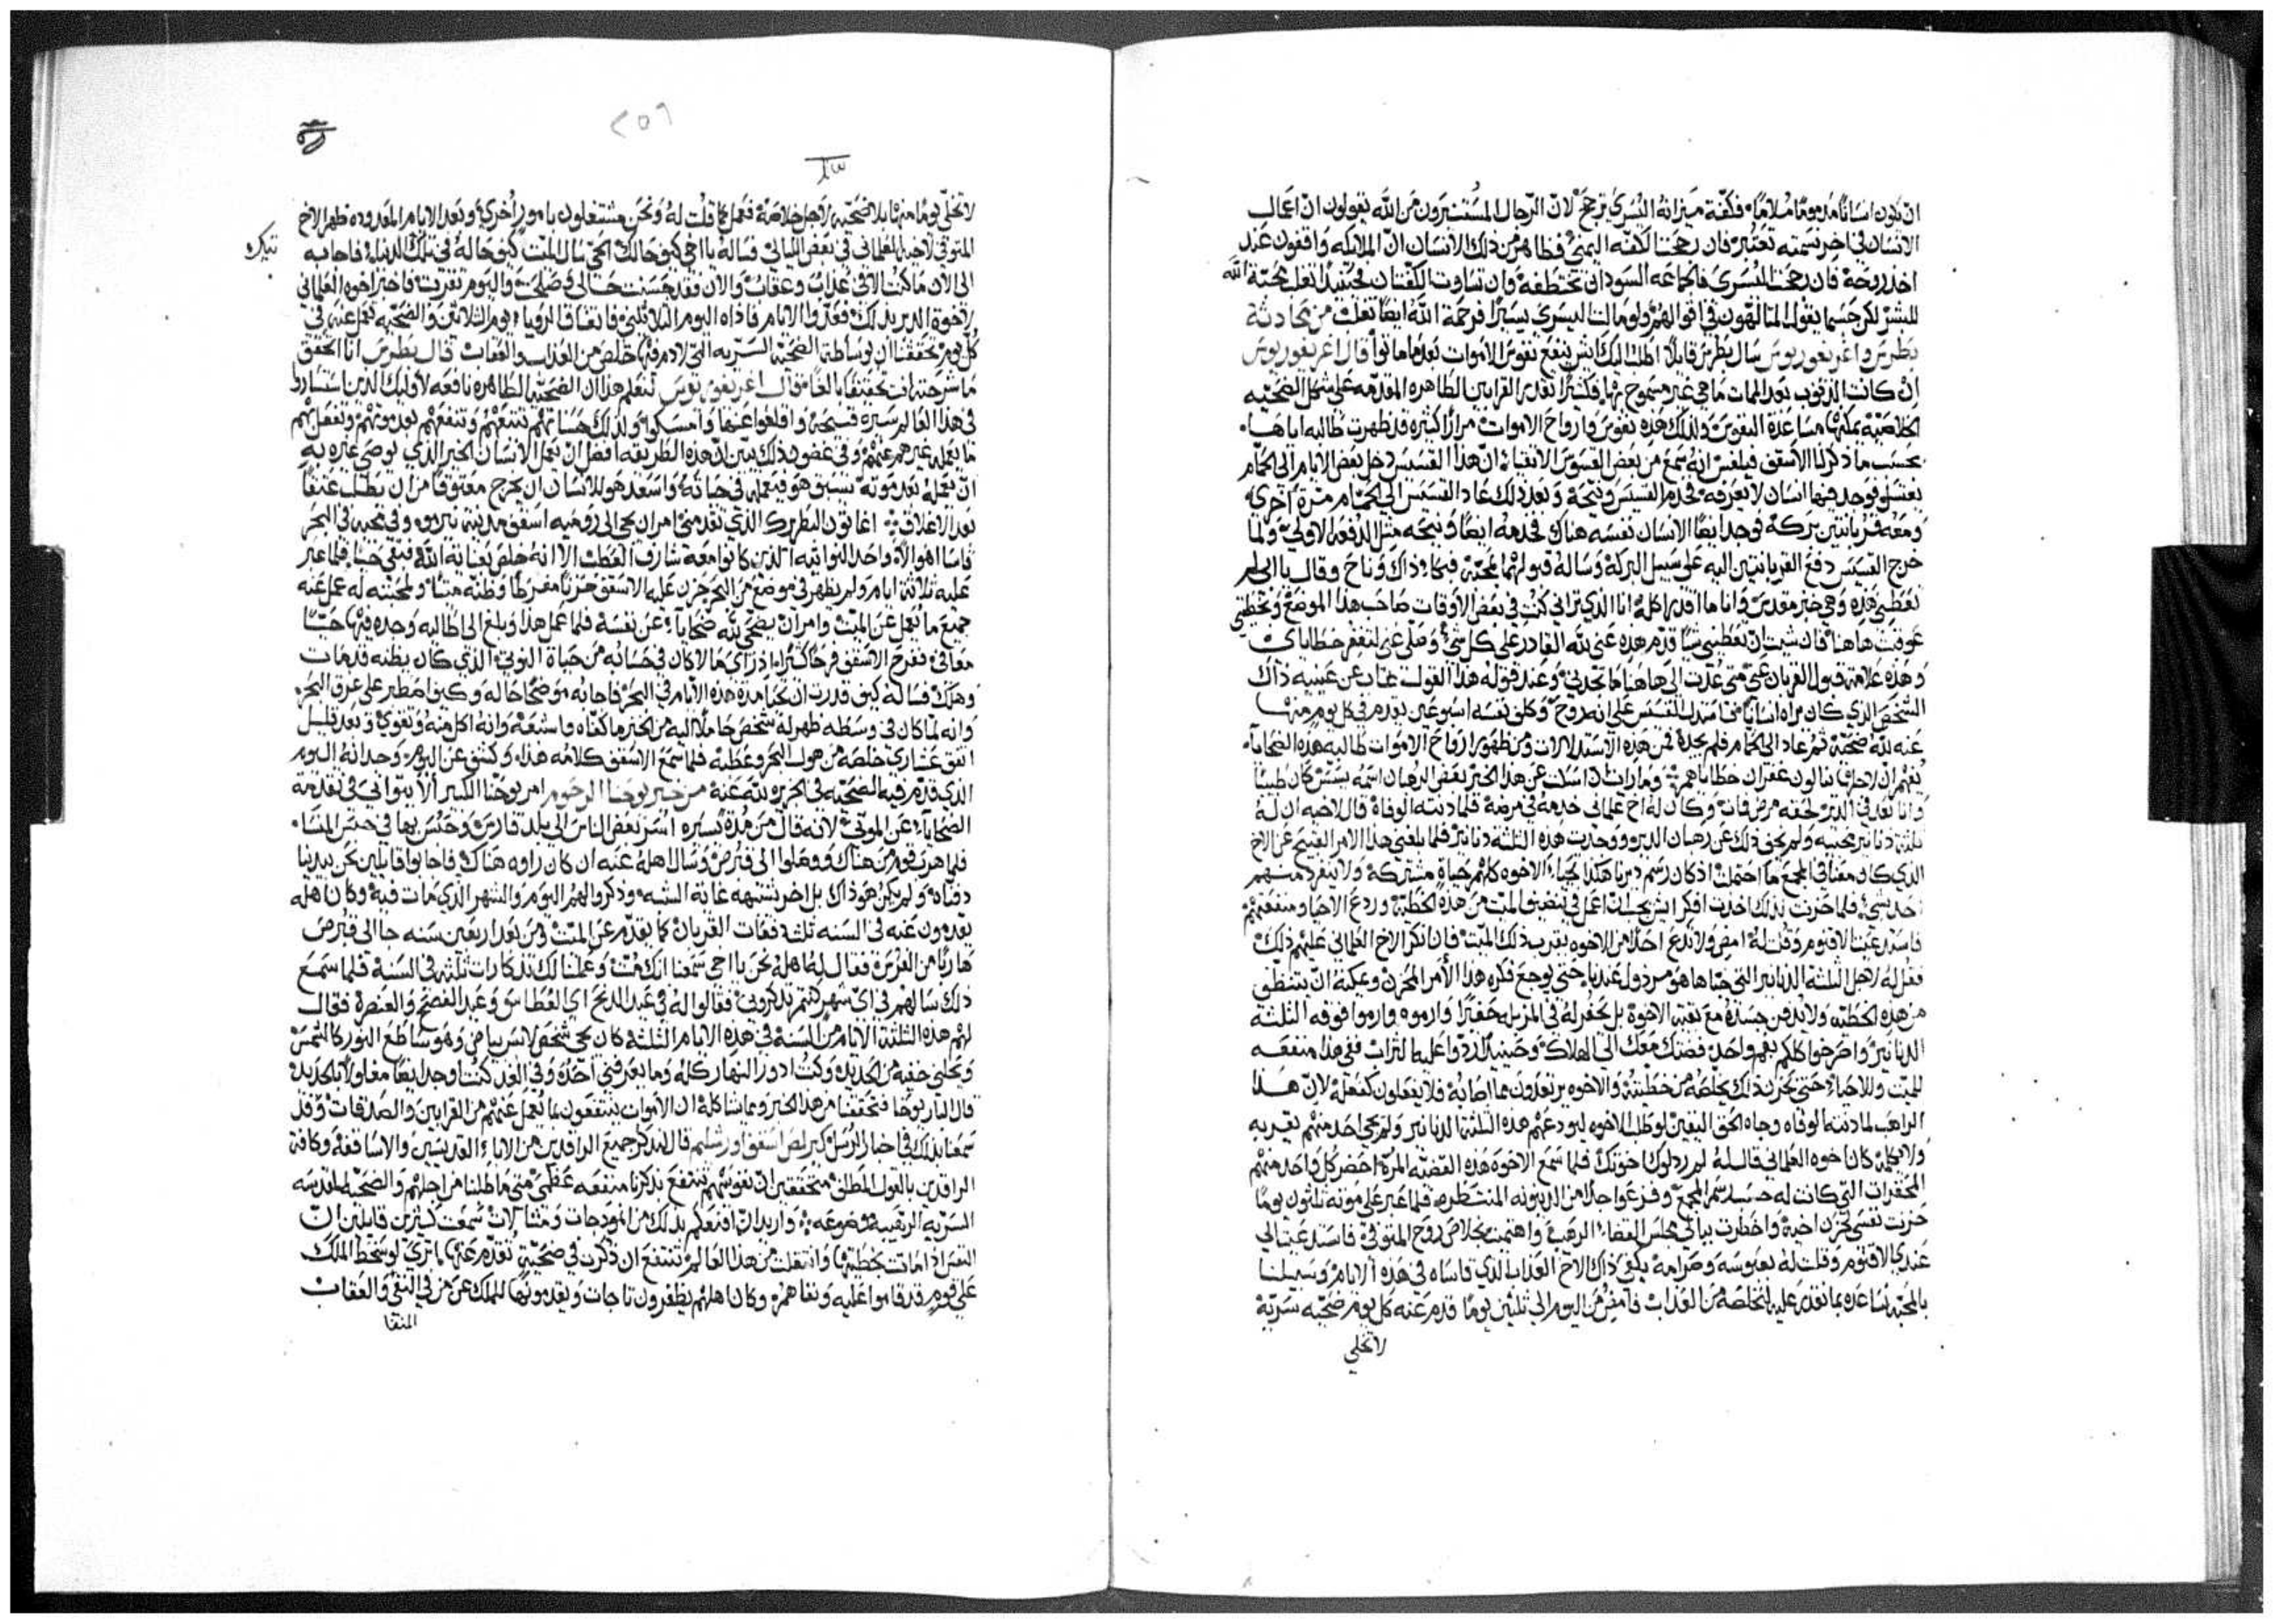 ان يكون انسانًا مذمومًا مُلامًا فكفّة ميزانه اليُسرى ترجح لان الرجال المُستنيرون من الله يقولون ان اعمال
الانسان في اخر نسمته تعتبر فان رجحت الكفّه اليمنى فظاهر من ذلك الانسان انّ الملايكه واقفون عند
اخذ روحه فان رجحت اليُسرى فالجماعه السودان تختطفه وان تساوت الكفّتان فحينيذٍ تغلب محبّة الله
للبشر لكن حسبما يقول المتالهون في اقوالهم ولو مالت اليسرى يسيرًا فرحمة الله ايضًا تغلب من محادثة
بطرس واغريغوريوس سال بطرس قايلاً اطلب اليك ايش ينفع نفوس الاموات بعد ما ماتوا قال اغريغوريوس
ان كانت الذنوب بعد الممات ما هي غير مسموح بها فكثيرًا تقدر القرابين الطاهره المقدّمه على شكل الضحيّه
الخلاصيّه يمكنها مساعدة النفوس ولذلك هذه نفوس وارواح الاموات مرارًا كثيره قد ظهرت طالبه اياها
بحسب ما ذكر لنا الاسقف فيلكس انه سمع من بعض القسوس الاتقيا انّ هذا القسيس دخل بعض الايام الى الحمّام
يغتسل فوجد فيها انسان لا يعرفه فخدم القسيس ونيّحه وبعد ذلك عاد القسيس الى الحمّام مرّة اخرى
ومعه قربانتين بركه فوجد ايضًا الانسان نفسه هناك فخدمه ايضًا ونيّحه مثل الدفعه الاولى ولمّا
خرج القسيس دفع القربانتين اليه على سبيل البركه وساله قبولهما لمحبّته فبكا ذاك وناح وقال يا ابي لم
تعطيني هذه وهي خبز مقدس وانا ما اقدر اكله انا الذي تراني كنت في بعض الاوقات صاحب هذا الموضع ولخطيتي
عوقبت هاهنا فان شيت ان تعطيني شيًا قدّم هذه عنّي لله القادر على كل شي وصلّي عنّي لتغفر خطاياي
وهذه علامة قبول القربان عنّي متى عُدت الى هاهنا ما تجدني وعند قوله هذا القول غاب عن عينيه ذاك
الشخص الذي كان يراه انسانًا فاستدل القسيس على انه روح وكلّف نفسه اسبوعين يقدّم في كل يوم منها
عنه لله ضحيّه ثم عاد الى الحمّام فلم يجده فمن هذه الاستدلالات ومن ظهور ارواح الاموات طالبه هذه الضحايا
يُفهم ان لاجلها ينالون غفران خطاياهم وما رايت ان اسكت عن هذا الخبر بعض الرهبان اسمه يسطس كان طبيبًا
وانا بعد في الدير لحقه مرض فمات وكان له اخ علماني خدمه في مرضه فلما دنته الوفاة قال لاخيه ان له
ثلثة دنانير مخبيه ولم يخف ذلك عن رهبان الدير ووجدت هذه الثلثه دنانير فلما بلغني هذا الامر القبيح عن الاخ
الذي كان معنا في المجمع ما احتملت اذ كان رسم ديرنا هكذا يحيا الاخوه كلهم حياه مشتركه ولا ينفرد منهم
احد بشي فلما حزنت بذلك اخذت افكر ايش يجب ان اعمل في تنضيف الميّت من هذه الخطيّه وردع الاحيا ومنفعتهم
فاستدعيت الاقنوم وقلت له امضِ ولا تدع احدًا من الاخوه يقرب ذلك الميت فان انكر الاخ العلماني عليهم ذلك
فقل له لاجل الثلثة الدنانير التي خبّاها هو مرذول عندنا حتى يوجع فكره هذا الأمر المحزن ويمكنه ان يتنظف
من هذه الخطيّه ولا يُدفن جسده مع بقيّة الاخوة بل تحفر له في المزبله حفيرًا وارموه وارموا فوقه الثلثة
الدنانير واصرخوا كلكم بفم واحد فضتك معك الى الهلاك وحينيذٍ اردّوا عليه التراب ففي هذا منفعه
للميّت وللاحياء حتى يحزن ذلك يخلصه من خطيّته والاخوه يرتعدون مما اصابه فلا يفعلون كفعله لانّ هذا
الراهب لما دنته الوفاه وجاه الحق اليقين لوطلب الاخوه ليودعهم هذه الثلثة الدنانير ولم يجي احد منهم يعزيه
ولا يكلّمه كان اخوه العلماني قال له لم رذلوك اخوتك فلما سمع الاخوه هذه القضيّه المرّة احضر كل واحد منهم
المحقرات التي كانت له حسب رسم المجمع وفزعوا جدًا من الدينونه المنتظره فلما عبر على موته ثلثون يومًا
حزنت نفسي لحزن اخيه واخطرت ببالي مجلس القضاء الرهيب واهتممت بخلاص روح المتوفي فاستدعيت الى
عندي الاقنوم وقلت له بعبوسه وصرامه يكفي ذاك الاخ العذاب الذي قاساه في هذه الايام وسبيلنا
بالمحبّه نُساعده بما نقدر عليه لنخلصه من العذاب فامضِ من اليوم الى ثلثين يومًا قدّم عنه كل يوم ضحيّه سريّة
لا تخلي
٢٥٦
لا تخلّي يومًا منها بلا ضحيّه لاجل خلاصه ففعل كما قلت له ونحن مشتغلون بامور أُخرى وبعد الايام المعدوده ظهر الاخ
المتوفى لاخيه العلماني في بعض الليالي فساله يا اخي كيف حالك الحيّ يسال الميت كيف حاله في تلك الدنيا فاجابه
الى الآن ما كنت الا في عذاب وعقاب والآن فقد حسنت حالي وصلحت واليوم تقربت فاخبر اخوه العلماني
لاخوة الدير بذلك فعدّوا الايام فاذاه اليوم الثلاثين فاتفاق الرويا ويوم الثلاثين والضحيّه تعمل عنه في
كل يوم تحققنا ان بوساطة الضحيّة السريه التي لا دم فيها خلص من العذاب والعقاب قال بطرس انا اتحقق
ما شرحته انت تحقيقًا بالغًا قال اغريغوريوس لنعلم هذا ان الضحيّه الطاهره نافعه لاوليك الذين استسارُوا
في هذا العالم سيرة قبيحة واقلعوا عنها وامسكوا ولذلك حسناتهم تتبعهم وتنفعهم بعد موتهم وتفعل لهم
ما يعمله غيرهم عنهم وفي غضون ذلك يتبيّن ان هذه الطريقه افضل ان يعمل الانسان الخير الذي يوصي غيره به
ان يعمله بعد موته يسبق هو فيعمله في حياته واسعد هو للانسان ان يخرج معتوقًا من ان يطلب عتقًا
بعد الاغلاق اغاثون البطريرك الذي تقدّمني امر ان يجي الى روميه اسقف مدينة بنرمو وفي مجيه في البحر
قاسا اهوالاً واحد النواتيه الذين كانوا معه شارف العطب الا انه خلص بعناية الله وبقي حيًا فلما عبر
عليه ثلاثة ايام ولم يظهر في موضع من البحر حزن عليه الاسقف حزنًا مفرطًا وظنّه ميّتًا ولمحبته له عمل عنه
جميع ما يُعمل عن الميّت وامر ان يضحّي لله ضحايا عن نفسه فلما عمل هذا وبلغ الى ايطاليه وجده فيها حيّا
معافى ففرح الاسقف فرحًا كثيرًا اذ راى ما لا كان في حسابه من حياة النوتي الذي كان يظنه قد مات
وهلك فساله كيف قدرت ان تحيا مدة هذه الايام في البحر فاجابه موضحًا حاله وكيف اضطر على غرق البحر
وانه لما كان في وسطه ظهر له شخص حاملاً اليه من الخبز ما كفّاه واشبعه وانه اكل منه وتقوّى وبعد قليل
اتفق عشاري خلصه من هول البحر وعطبه فلما سمع الاسقف كلامه هذا وكشف عن اليوم وجد انه اليوم
الذي قدّم فيه الضحيّه في الجزيره لله عنه من خبر يوحنا الرحوم امر يوحنا الكبير ألا يتوانى في تقدمة
الضحايا عن الموتى لانه قال من مدة يسيره اُسر بعض الناس الى بلد فارس وحُبس بها في حبس المنسا
فلما هرب قوم من هناك ووصلوا الى قبرص وسال اهله عنه ان كان راوه هناك فاجابوا قايلين نحن بيدينا
دفنّاه ولم يكن هو ذاك بل اخر يشبهه غاية الشبه وذكروا لهم اليوم والشهر الذي مات فيه وكان اهله
يقدمون عنه في السنه ثلث دفعات القربان كما يقدّم عن الميّت ومن بعد اربعين سنه جا الى قبرص
هاربًا من الفُرس فقال له اهله نحن يا اخي سمعنا انك مُتّ وعملنا لك تذكارات ثلثه في السنة فلما سمع
ذلك سالهم في ايّ شهر كنتم تذكروني فقالوا له في عيد الدنح اي الغطاس وعيد الفصح والعنصرة فقال
لهم هذه الثلثة الايام من السنه في هذه الايام الثلثة كان يجي شخص لابس بياض وهو ساطع النور كالشمس
ويحلّني خفيةً من الحديد وكنت ادور النهار كله وما يعرفني احد وفي الغد كنت اوجد ايضًا مغلولاً بالحديد
قال البار يوحنا فتحققنا من هذا الخبر وما شاكله ان الاموات ينتفعون بما يُعمل عنهم من القرابين والصدقات وقد
سمعنا بذلك في اخبار الرسل كيرلص اسقف اورشليم قال لنذكر جميع الراقدين من الاباء القديسين والاساقفه وكافة
الراقدين بالقول المطلق متحققين ان نفوسهم تنتفع بذكرنا منفعه عظمى متى ما طلبنا من اجلهم والضحيّه المقدسه
السرّيه الرهيبة موضوعه واريد ان اقنعكم بذلك من انموذجات ومثالات سمعت كثيرين قايلين انّ
النفس اذا ماتت بخطيتها وانتقلت من هذا العالم تنتفع ان ذُكرت في ضحيّة تُقدّم عنها اترى لو سخط الملك
على قوم قد قاموا عليه ونفاهم وكان اهلهم يظفرون تاجات ويقدمونها للملك عن من في النفي والعقاب
المنقا